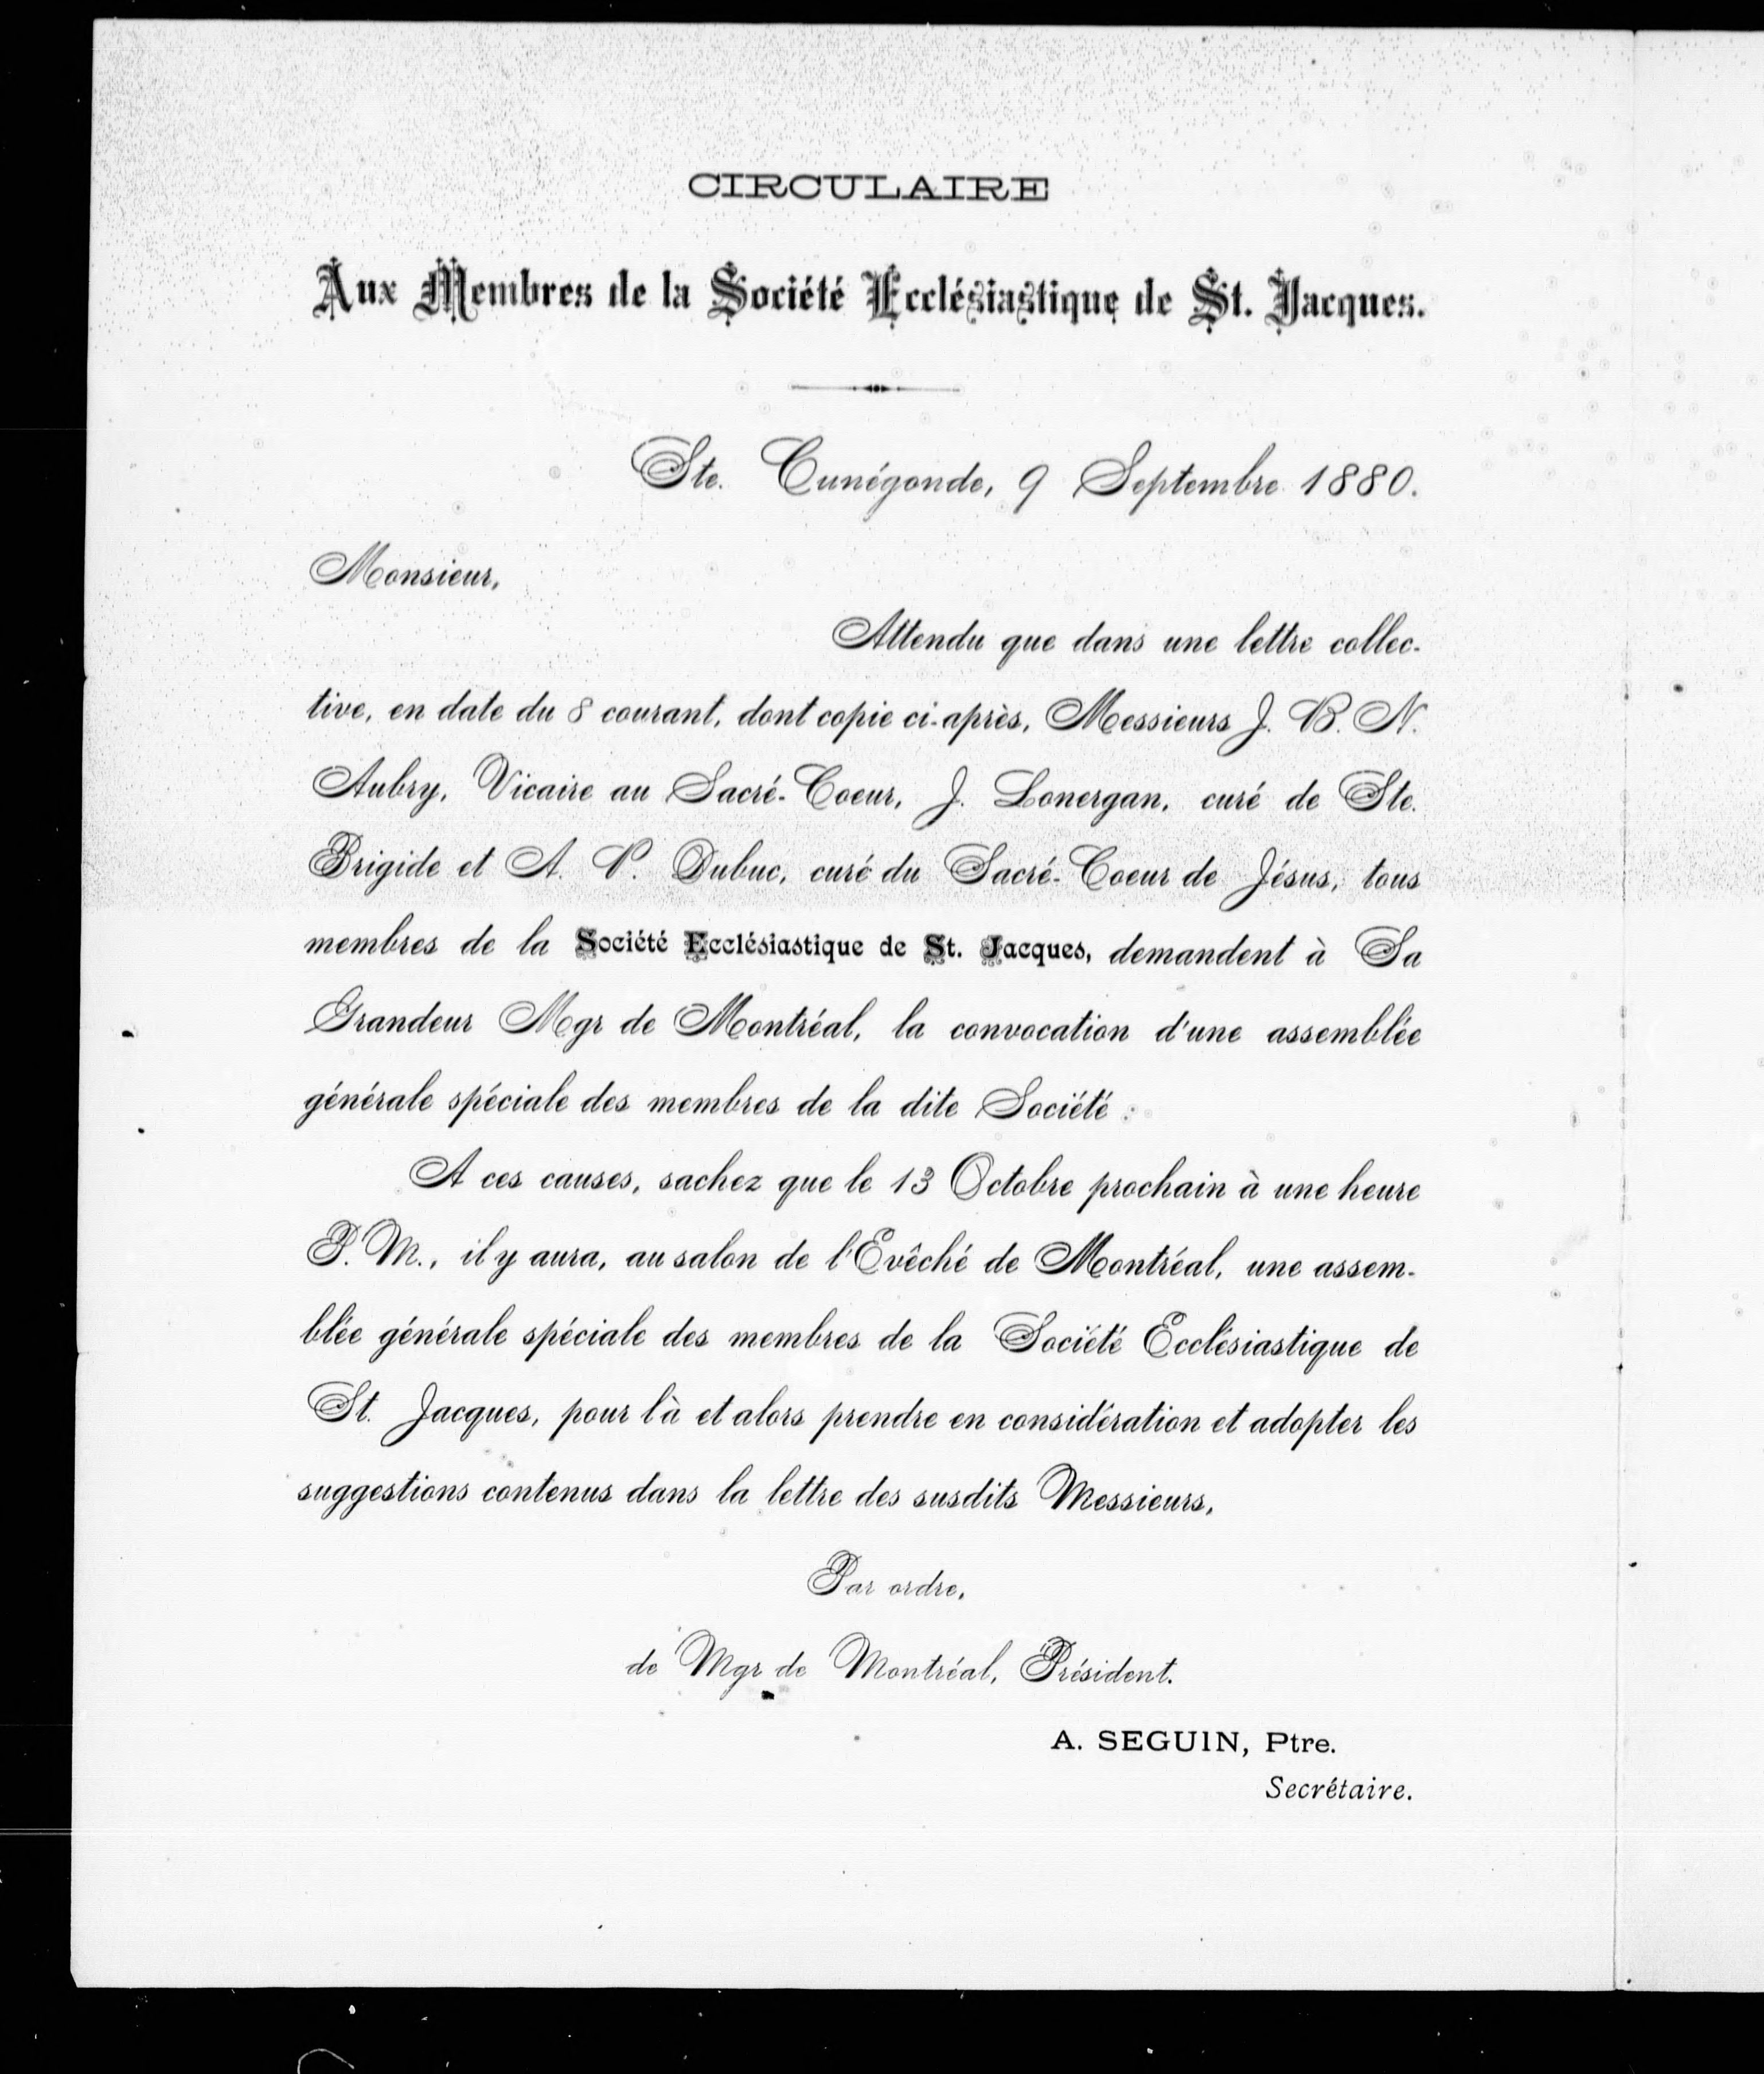 CIRCULAIRE
Aux Membres de la Société Ecclésiastique de St. Jacques.
Ste. Cunégonde, 9 Septembre 1880.
Monsieur,
Attendu que dans une lettre collec-
tive, en date du 8 courant, dont copie ci-après, Messieurs J. B. N.
Aubry, Vicaire au Sacré-Coeur, J. Lonergan, curé de Ste.
Brigide et A. P. Dubuc, curé du Sacré-Coeur de Jésus, tous
membres de la Société Ecclésiastique de St. Jacques, demandent à Sa
Grandeur Mgr de Montréal, la convocation d'une assemblée
générale spéciale des membres de la dite Société :
A ces causes, sachez que le 13 Octobre prochain à une heure
P. M., il y aura, au salon de l'Evêché de Montréal, une assem-
blée générale spéciale des membres de la Société Ecclésiastique de
St. Jacques, pour là et alors prendre en considération et adopter les
suggestions contenus dans la lettre des susdits Messieurs,
Par ordre,
de Mgr de Montréal, Président.
A. SEGUIN, Ptre.
Secrétaire.